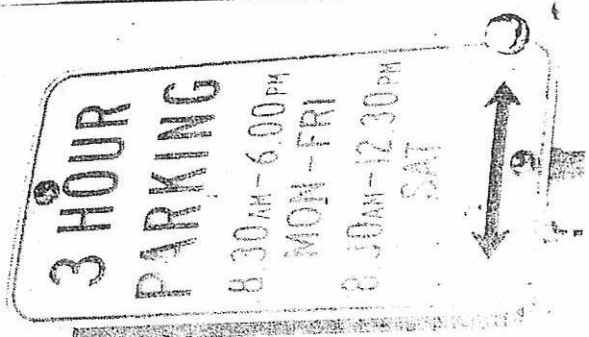 3 HOUR
PARKING
8.30AM-6.00PM
MON-FRI
8.30AM-12.30PM
SAT